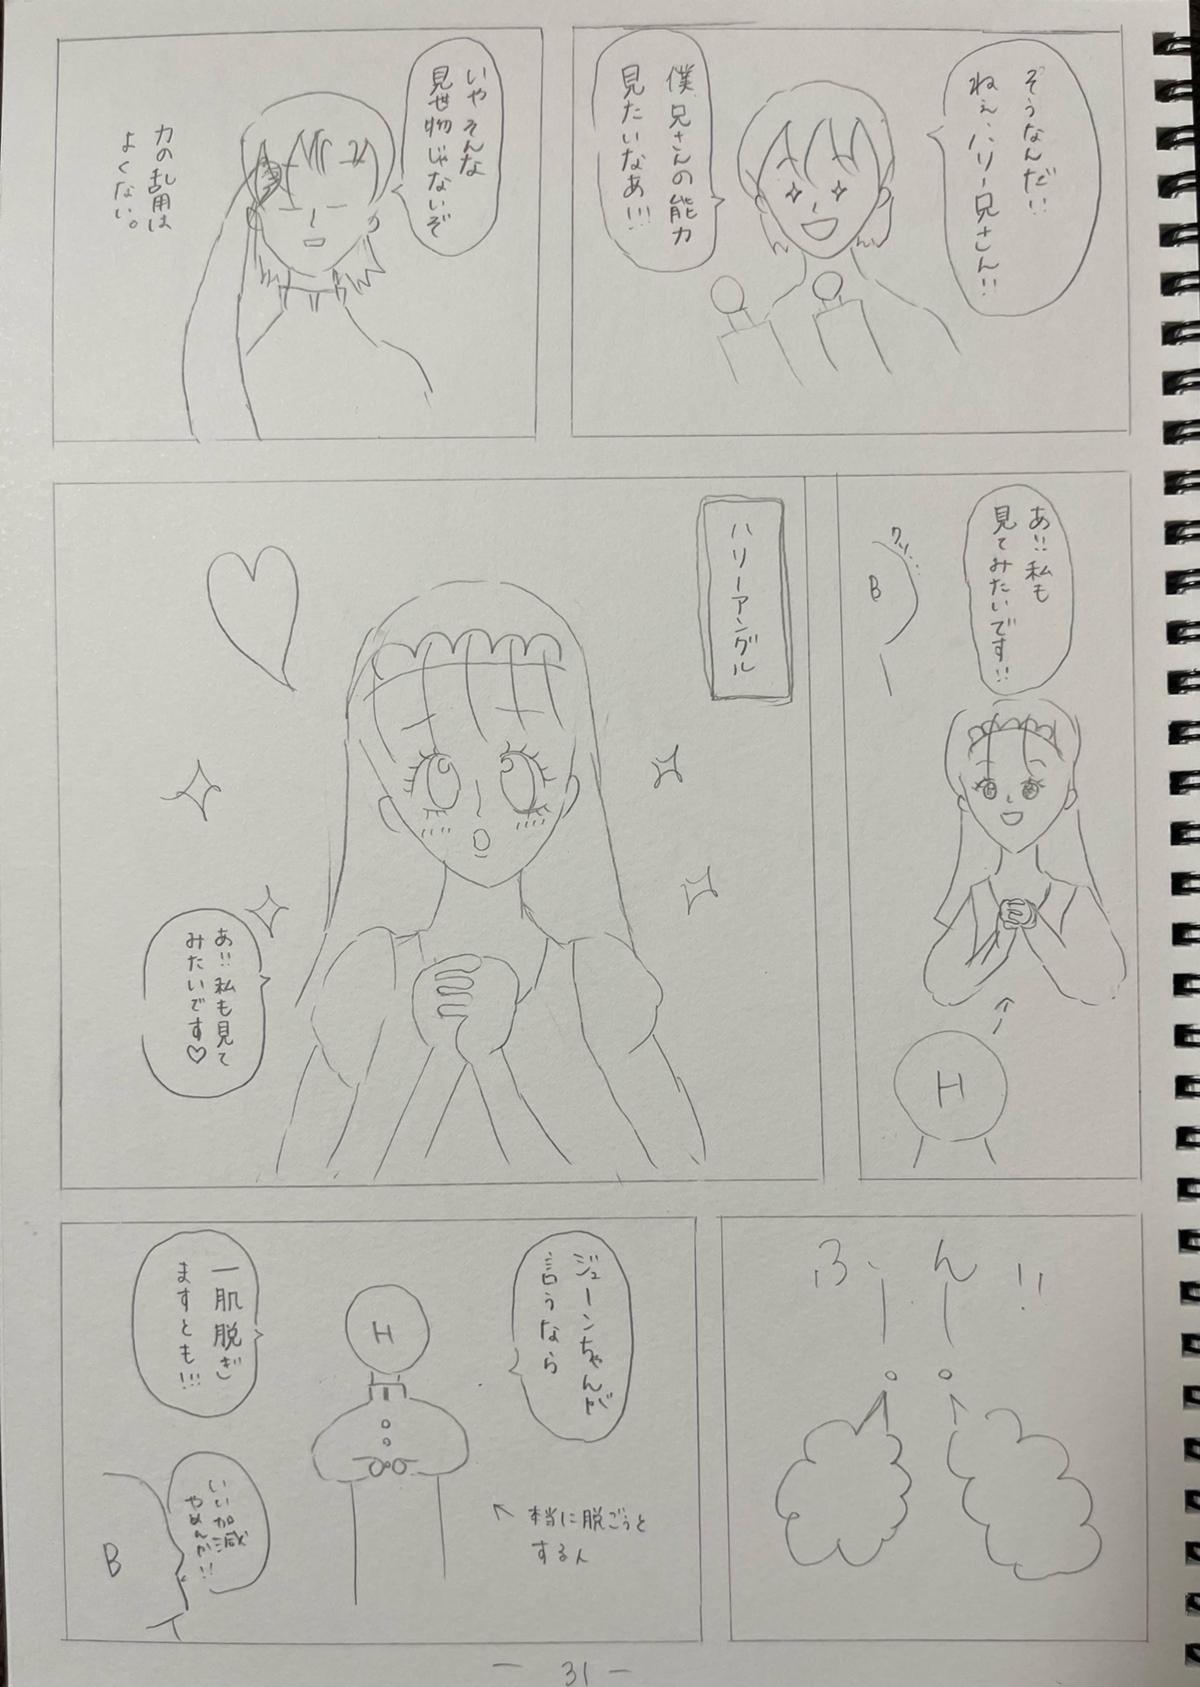 そうなんだ!!
ねぇ、ハリー兄さん!!
僕、兄さんの能力
見たいなあ!!!
いやそんな
見世物じゃないぞ
力の乱用は
よくない。
あ!!私も
見てみたいです!!
クソ…
B
H
ハリーアングル
あ!!私も見て
みたいです♡
ふん!!
ジューンちゃんが
言うなら
H
一肌脱ぎ
ますとも!!!
本当に脱ごうと
する人
いい加減
やめんか!!
B
- 31 -